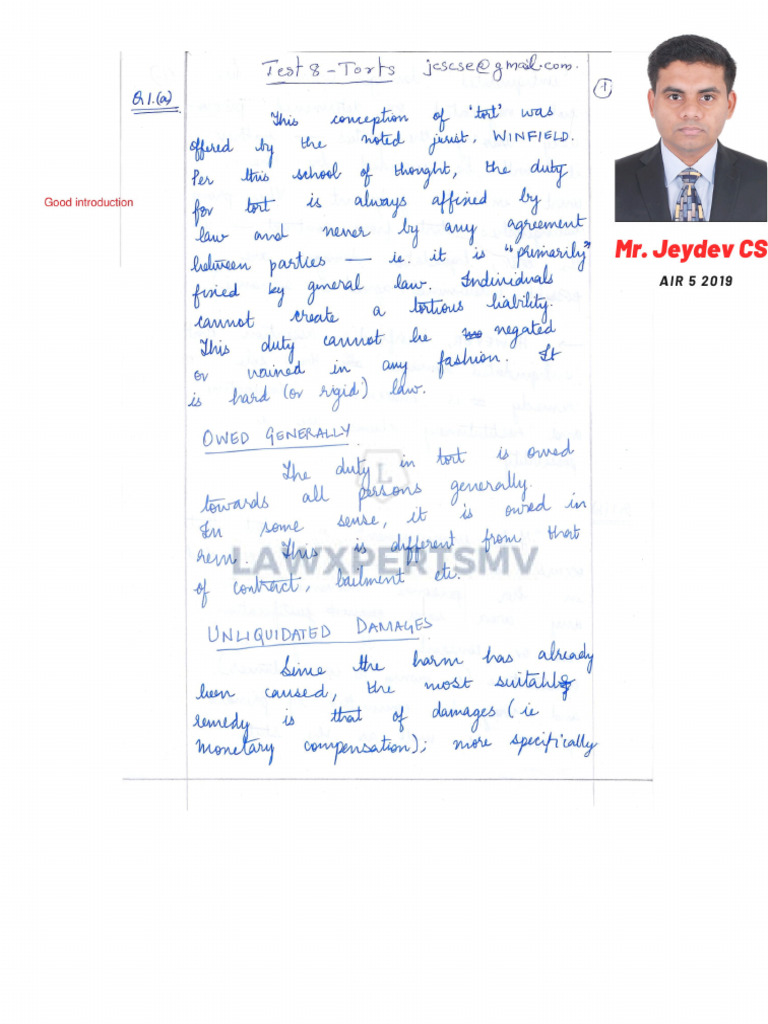 Test 8 - Torts jcscse@gmail.com.
1
Q1.(a)
This conception of 'tort' was
offered by the noted jurist, WINFIELD.
Per this school of thought, the duty
for tort is always affixed by
law and never by any agreement
between parties — ie. it is "primarily"
fixed by general law. Individuals
cannot create a tortious liability.
This duty cannot be negated
or vained in any fashion. It
is hard (or rigid) law.
Good introduction
Mr. Jeydev CS
AIR 5 2019
OWED GENERALLY
The duty in tort is owed
towards all persons generally.
In some sense, it is owed in
rem. This is different from that
of contract, bailment etc.
L
LAWXPERTSMV
UNLIQUIDATED DAMAGES
Since the harm has already
been caused, the most suitable
remedy is that of damages (ie
monetary compensation); more specifically